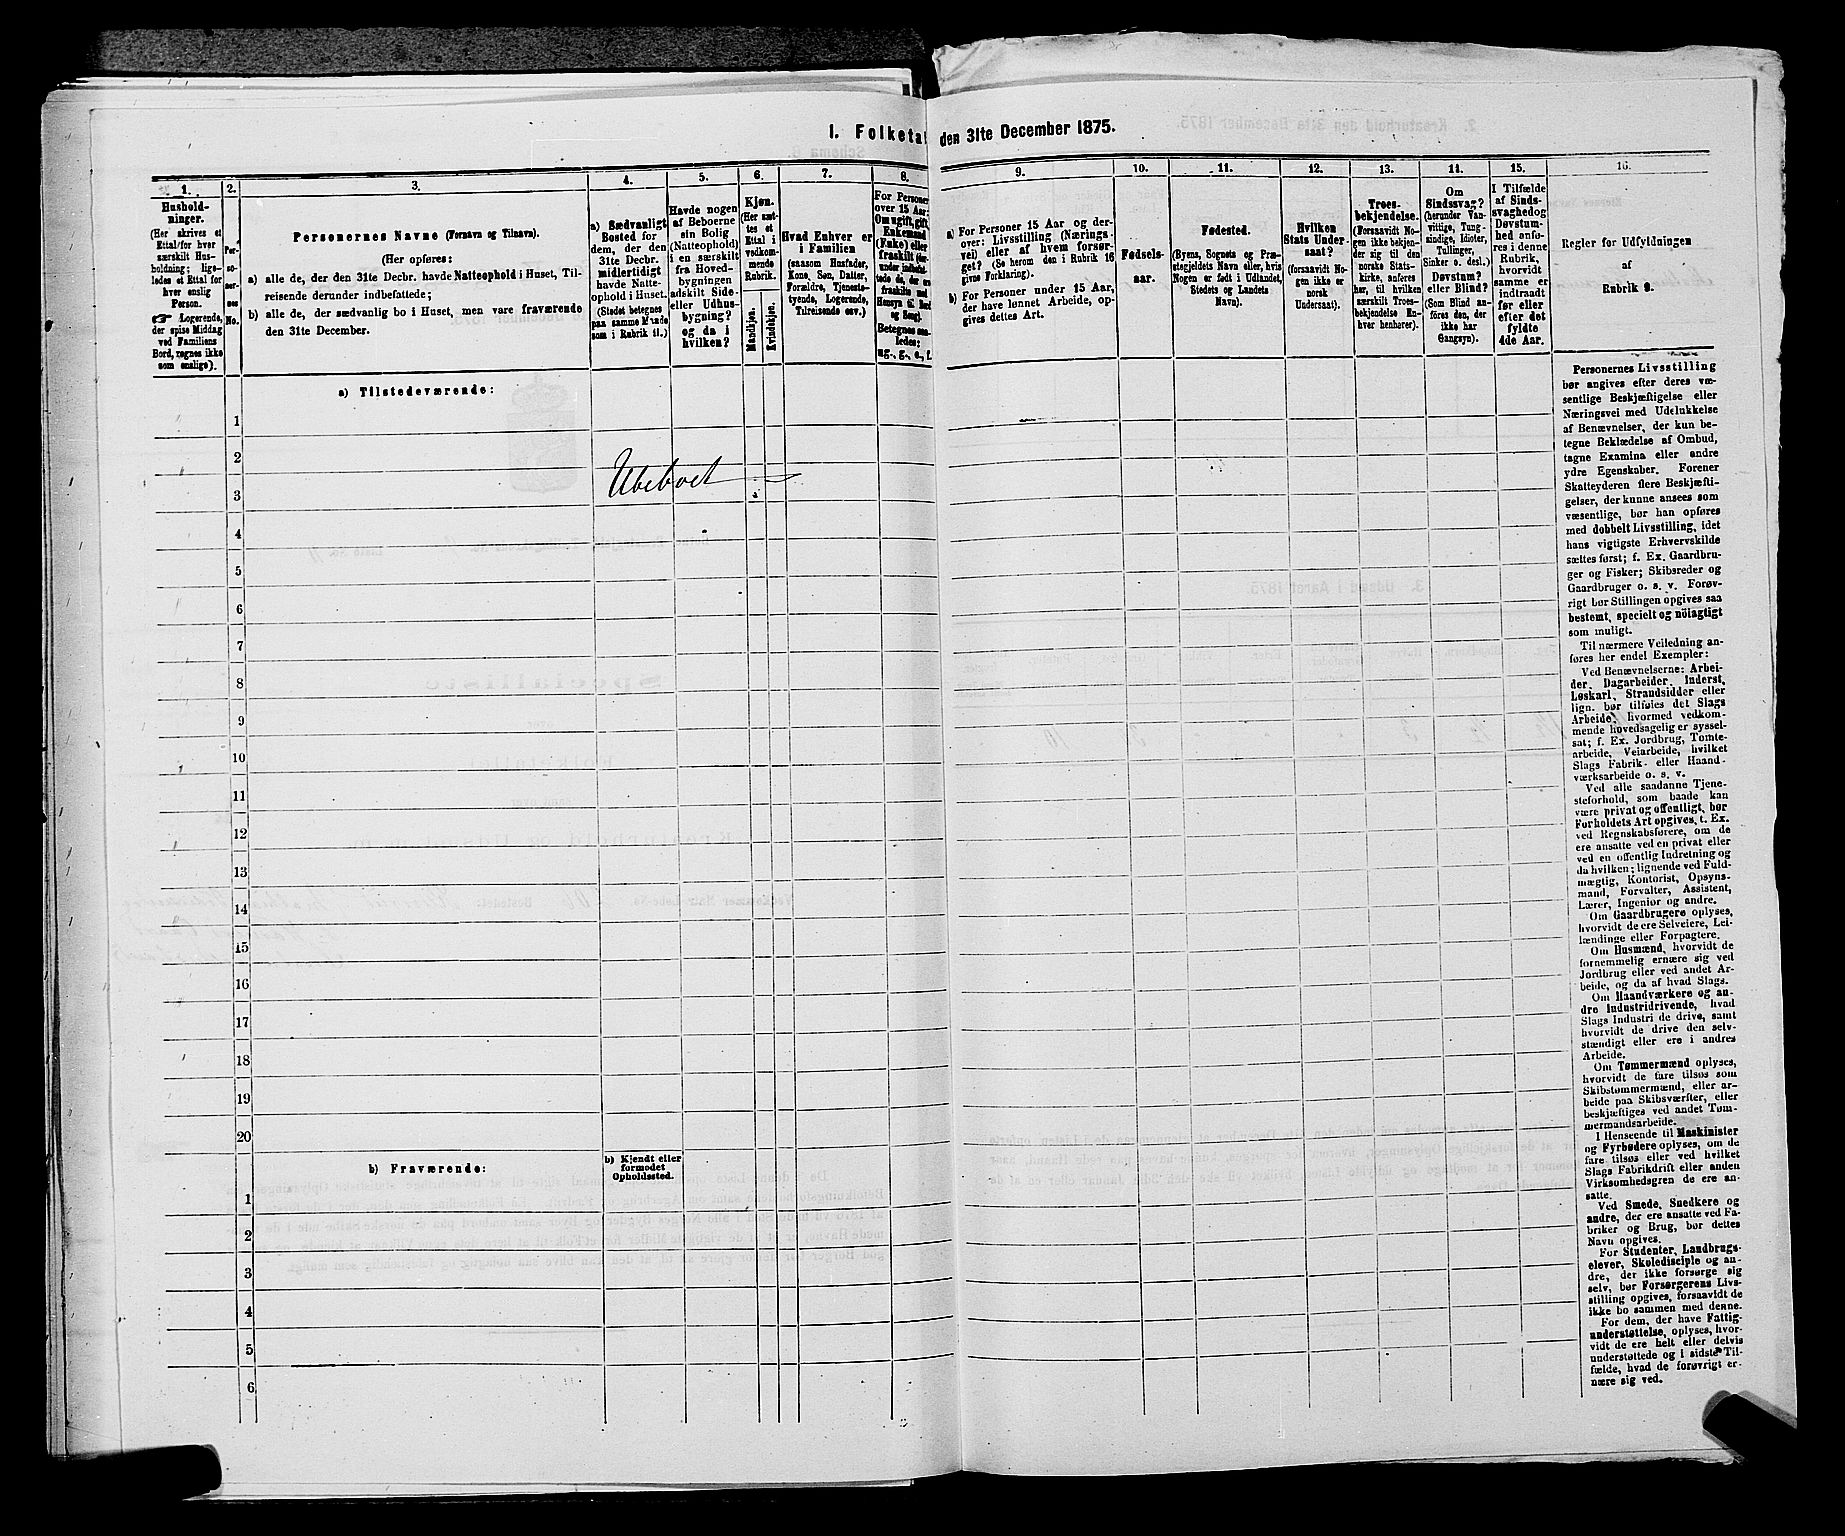 I. Folketal den 31te December 1875.
1.
2.
3.
4.
5.
6.
7.
8.
9.
10.
11.
12.
13.
14.
15.
16.
Hushold-
ninger.
(Her skrives et
Ettal for hver
særskilt Hus-
holdning; lige-
ledes et Ettal for
hver enslig
Person.
☞ Logerende,
der spise Middag
ved Familiens
Bord, regnes ikke
som enslige).
Per-
so-
ner-
nes
No.
Personernes Navne (Fornavn og Tilnavn).
(Her opføres:
a) alle de, der den 31te Decbr. havde Natteophold i Huset, Til-
reisende derunder indbefattede;
b) alle de, der sædvanlig bo i Huset, men vare fraværende
den 31te December.
a) Sædvanligt
Bosted for
dem, der den
31te Decbr.
midlertidigt
havde Natte-
ophold i Huset.
(Stedet betegnes
paa samme Maade
som i Rubrik 11.)
Havde nogen
af Beboerne
ein Bolig
(Natteophold)
i en særskilt
fra Hoved-
bygningen
adskilt Side-
eller Udhus-
bygning?
og da i
hvilken?
Kjøn.
(Her sæt-
tes et
Ettal i
vedkom-
mende
Rubrik.
Mandkjøn.
Kvindekjøn.
Hvad Enhver er
i Familien
(saasom Husfader,
Kone, Søn, Datter,
Forældre, Tjeneste-
tyende, Logerende,
Tilreisende osv.)
For Personer
over 15 Aar:
Om ugift, gift,
Enkemand
(Enke) eller
fraskilt
Betegnes saa-
ledes:
ug., g., e., f.
a) For Personer 15 Aar og der-
over: Livsstilling (Nærings-
vei) eller af hvem forsør-
get? (Se herom den i Rubrik 16
givne Forklaring).
b) For Personer under 15 Aar,
der have lønnet Arbeide, op-
gives dettes Art.
Fødsels-
aar.
Fødested.
(Byens, Sognets og Præ-
stegjeldets Navn eller, hvis
Nogen er født i Udlandet,
Stedets og Landets
Navn).
Hvilken
Stats Under-
saat?
(forsaavidt No-
gen ikke er
norsk
Undersaat).
Troes-
bekjendelse.
(Forsaavidt No-
gen ikke bekjen-
der sig til den
norske Stats-
kirke, anføres
her, til hvilken
særskilt Troes-
bekjendelse En-
hver henhører).
Om
Sindssvag?
(herunder Van-
vittige, Tung-
sindige, Idioter,
Tullinger,
Sinker o. desl.)
Døvstum?
eller Blind?
(Som Blind an-
føres den, der
ikke har
Gangsyn).
I Tilfælde
af Sinds-
svaghed og
Døvstum-
hed anfø-
res i denne
Rubrik,
hvorvidt
samme er
indtraadt
før eller
efter det
fyldte
4de Aar.
Regler for Udfyldningen
af
Rubrik 9.
a) Tilstedeværende:
1
2
Ubeboet
3
4
5
6
7
8
9
10
11
12
13
14
15
16
17
18
19
20
b) Fraværende:
b) Kjendt eller
formodet
Opholdssted.
1
2
3
4
5
6
Personernes Livsstilling
bør angives efter deres væ-
sentlige Beskjæftigelse eller
Næringsvei med Udelukkelse
af Benævnelser, der kun be-
tegne Beklædelse af Ombud,
tagne Examina eller andre
ydre Egenskaber. Forener
Skatteyderen flere Beskjæfti-
gelser, der kunne ansees som
væsentlige, bør han opføres
med dobbelt Livsstilling, idet
hans vigtigste Erhvervskilde
sættes først; f. Ex. Gaardbru-
ger og Fisker; Skibsreder og
Gaardbruger o. s. v. Forøv-
rigt bør Stillingen opgives saa
bestemt, specielt og nöiagtigt
som muligt.
Til nærmere Veiledning an-
føres her endel Exempler:
Ved Benævnelserne: Arbei-
der, Dagarbeider, Inderst,
Løskarl, Strandsidder eller
lign. bør tilføies det Slags
Arbeide, hvormed vedkom-
mende hovedsagelig er syssel-
sat; f. Ex. Jordbrug, Tomte-
arbeide, Veiarbeide, hvilket
Slags Fabrik- eller Haand-
værksarbeide o. s. v.
Ved alle saadanne Tjene-
steforhold, som baade kan
være privat og offentligt, bør
Forholdets Art opgives, t. Ex.
ved Regnskabsførere, om de
ere ansatte ved en privat eller
ved en offentlig Indretning og
da hvilken; lignende ved Fuld-
mægtig, Kontorist, Opsyns-
mand, Forvalter, Assistent,
Lærer, Ingeniør og andre.
Om Gaardbrugere oplyses,
hvorvidt de ere Selveiere, Lei-
lændinge eller Forpagtere.
Om Husmænd, hvorvidt de
fornemmelig ernære sig ved
Jordbrug eller ved andet Ar-
beide, og da af hvad Slags.
Om Haandværkere og an-
dre Industridrivende, hvad
Slags Industri de drive, samt
hvorvidt de drive den selv-
stændigt eller ere i andres
Arbeide.
Om Tømmermænd oplyses,
hvorvidt de fare tilsøs som
Skibstømmermænd, eller ar-
beide paa Skibsværfter, eller
beskjæftiges ved andet Tøm-
mermandsarbeide.
I Henseende til Maskinister
og Fyrbødere oplyses, om de
fare tilsøs eller ved hvilket
Slags Fabrikdrift eller anden
Virksomhedsgren de ere an-
satte.
Ved Smede, Snedkere og
andre, der ere ansatte ved Fa-
briker og Brug, bør dettes
Navn opgives.
For Studenter, Landbrugs-
elever, Skoledisciple og an-
dre, der ikke forsørge sig
selv, bør Forsørgerens Livs-
stilling opgives, forsaavidt de
ikke bo sammen med denne.
For dem, der have Fattig-
understøttelse, oplyses, hvor-
vidt de ere helt eller delvis
understøttede og i sidste Til-
fælde, hvad de forøvrigt er-
nære sig ved.